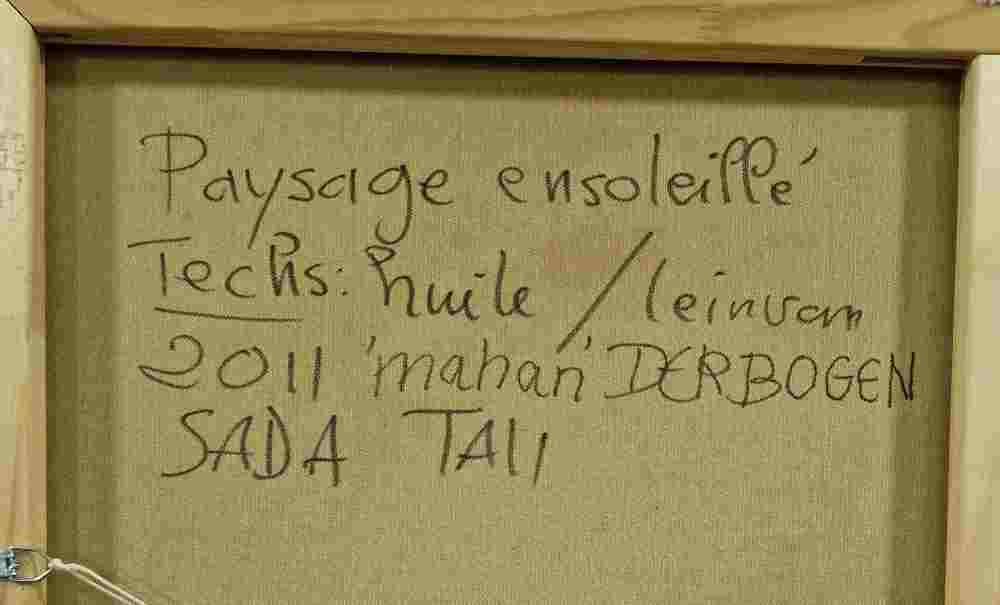 Paysage ensoleillé
Techs: huile / leinvam
2011 'mahan' DERBOGEN
SADA TALI